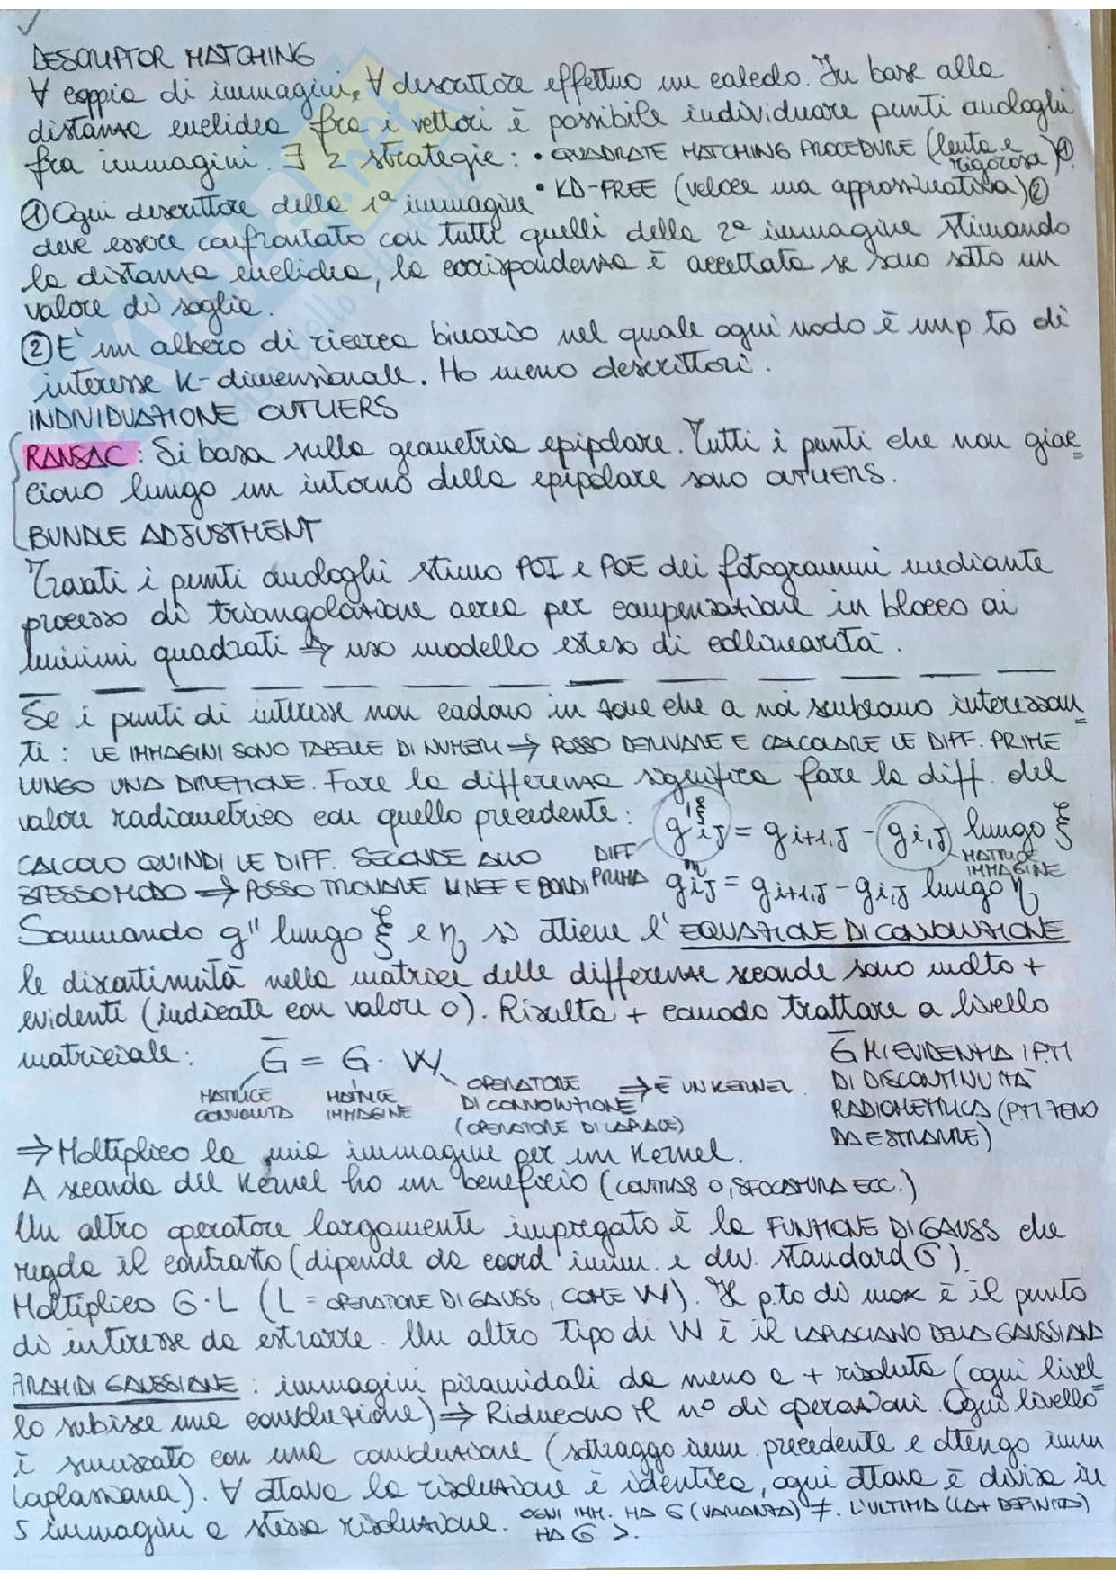 DESCRIPTOR MATCHING
∀ coppia di immagini, ∀ descrittore effettuo un calcolo. In base alla
distanza euclidea fra i vettori è possibile individuare punti analoghi
fra immagini. ∃ 2 strategie: • QUADRATE MATCHING PROCEDURE (lenta e rigorosa) ①
• KD-FREE (veloce ma approssimativa) ②
① Ogni descrittore della 1ª immagine
deve essere confrontato con tutti quelli della 2ª immagine stimando
la distanza euclidea, la corrispondenza è accettata se sono sotto un
valore di soglia.
② E' un albero di ricerca binario nel quale ogni nodo è un p.to di
interesse K-dimensionale. Ho meno descrittori.
INDIVIDUAZIONE OUTLIERS
RANSAC: Si basa sulla geometria epipolare. Tutti i punti che non giac
ciono lungo un intorno della epipolare sono OUTLIERS.
BUNDLE ADJUSTMENT
Trovati i punti analoghi stimo POI e POE dei fotogrammi mediante
processo di triangolazione aerea per compensazione in blocco ai
minimi quadrati ⇒ uso modello esteso di collinearità.
Se i punti di interesse non cadono in zone che a noi sembrano interessan
ti: LE IMMAGINI SONO TABELLE DI NUMERI ⇒ POSSO DERIVARE E CALCOLARE LE DIFF. PRIME
LUNGO UNA DIREZIONE. Fare la differenza significa fare la diff. del
valore radiometrico con quello precedente: g'^ξ ij = g i+1,J - g i,j lungo ξ
DIFF PRIMA
MATRICE IMMAGINE
CALCOLO QUINDI LE DIFF. SECONDE ALLO
STESSO MODO ⇒ POSSO TROVARE LINEE E BORDI
g^η iJ = g i+1,J - g i,J lungo η
Sommando g'' lungo ξ e η si ottiene l'EQUAZIONE DI CONVOLUZIONE
le discontinuità nella matrice delle differenze seconde sono molto +
evidenti (indicate con valore 0). Risulta + comodo trattare a livello
matriciale: G̅ = G · W
MATRICE CONVOLUTA
MATRICE IMMAGINE
OPERATORE DI CONVOLUZIONE (OPERATORE DI LAPLACE)
⇒ È UN KERNEL
G̅ MI EVIDENZIA I PTI
DI DISCONTINUITÀ
RADIOMETRICA (PTI ZERO
DA ESTRARRE)
⇒ Moltiplico la mia immagine per un Kernel.
A seconda del Kernel ho un beneficio (CONTRASTO, SFOCATURA ECC.)
Un altro operatore largamente impiegato è la FUNZIONE DI GAUSS che
regola il contrasto (dipende da coord imm. e dev. standard σ).
Moltiplico G·L (L = OPERATORE DI GAUSS, COME W). Il p.to di max è il punto
di interesse da estrarre. Un altro tipo di W è il LAPLACIANO DELLA GAUSSIANA
PIRAMIDI GAUSSIANE: immagini piramidali da meno a + risoluta (ogni livel
lo subisce una convoluzione) ⇒ Riducono il n° di operazioni. Ogni livello
è smussato con una convoluzione (sottraggo imm. precedente e ottengo imm
laplassiana). ∀ ottava la risoluzione è identica, ogni ottava è divisa in
5 immagini a stessa risoluzione. OGNI IMM. HA σ (VARIANZA) ≠. L'ULTIMA (LA + DEFINITA)
HA σ >.